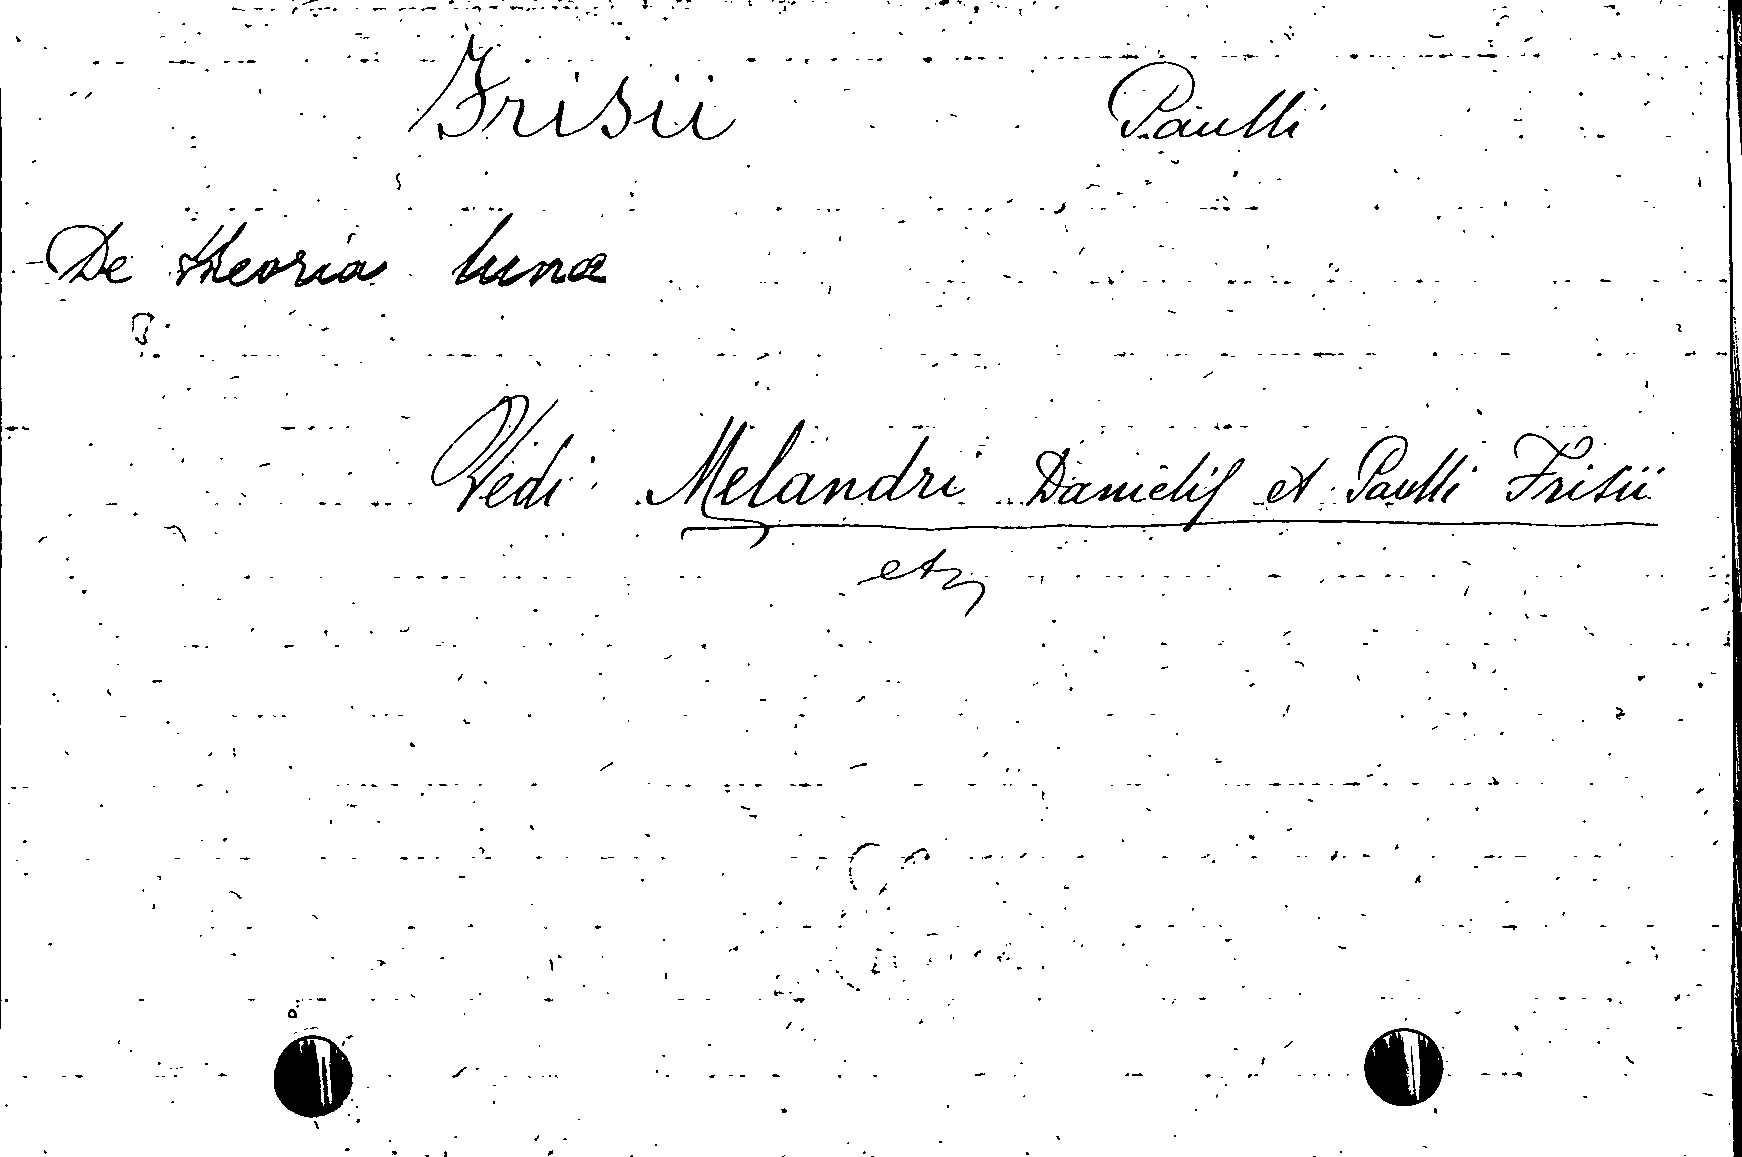 Frisii Paulli
De theoria lunæ
Vedi Melandri Danielis et Paulli Frisii
etc